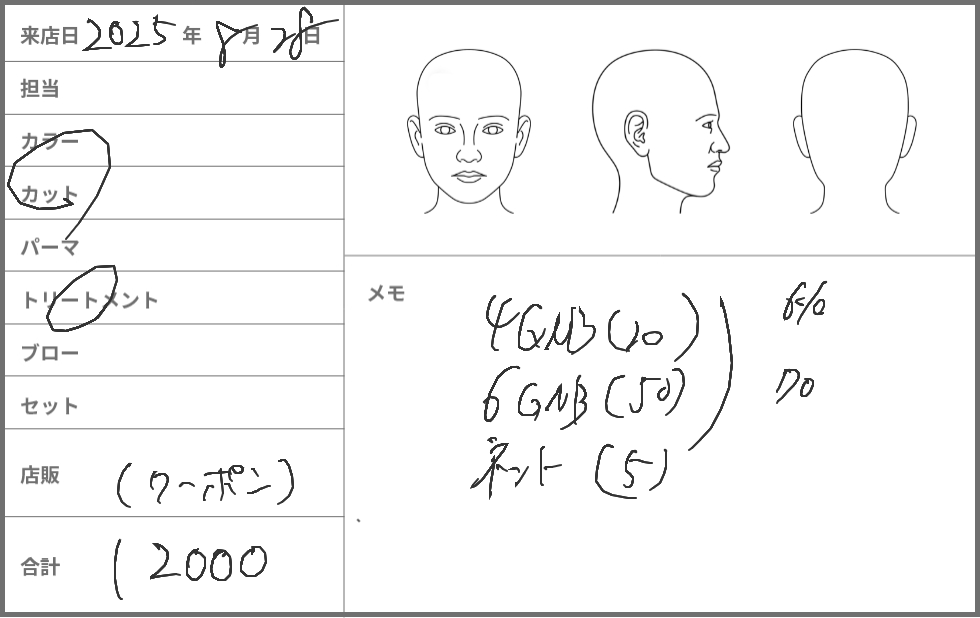 来店日 2025 年 8月 28日
担当
カラー
カット
パーマ
トリートメント
ブロー
セット
店販 (クーポン)
合計 12000
メモ
4GNB (20)
6GNB (50)
ネット (5)
6%
70